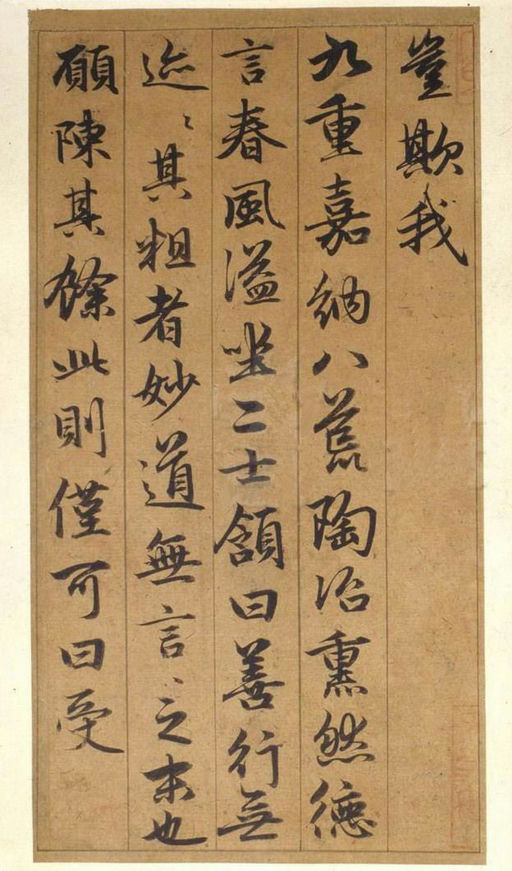 豈欺我
九重嘉納八荒陶冶熏然德
言春風溢坐二士頷曰善行无
迹〻其粗者妙道無言〻之末也
願陳其餘此則僅可曰受